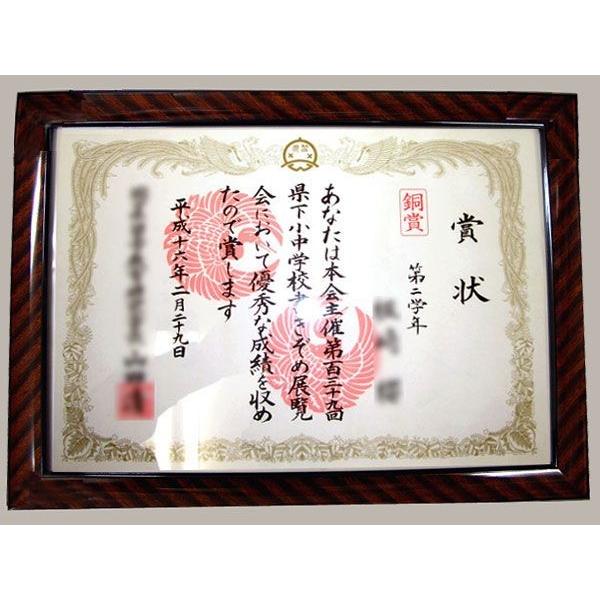 賞状
銅賞
第二学年
あなたは本会主催第百三十九回
県下小中学校書きぞめ展覧
会において優秀な成績を収め
たので賞します
平成十六年二月二十九日